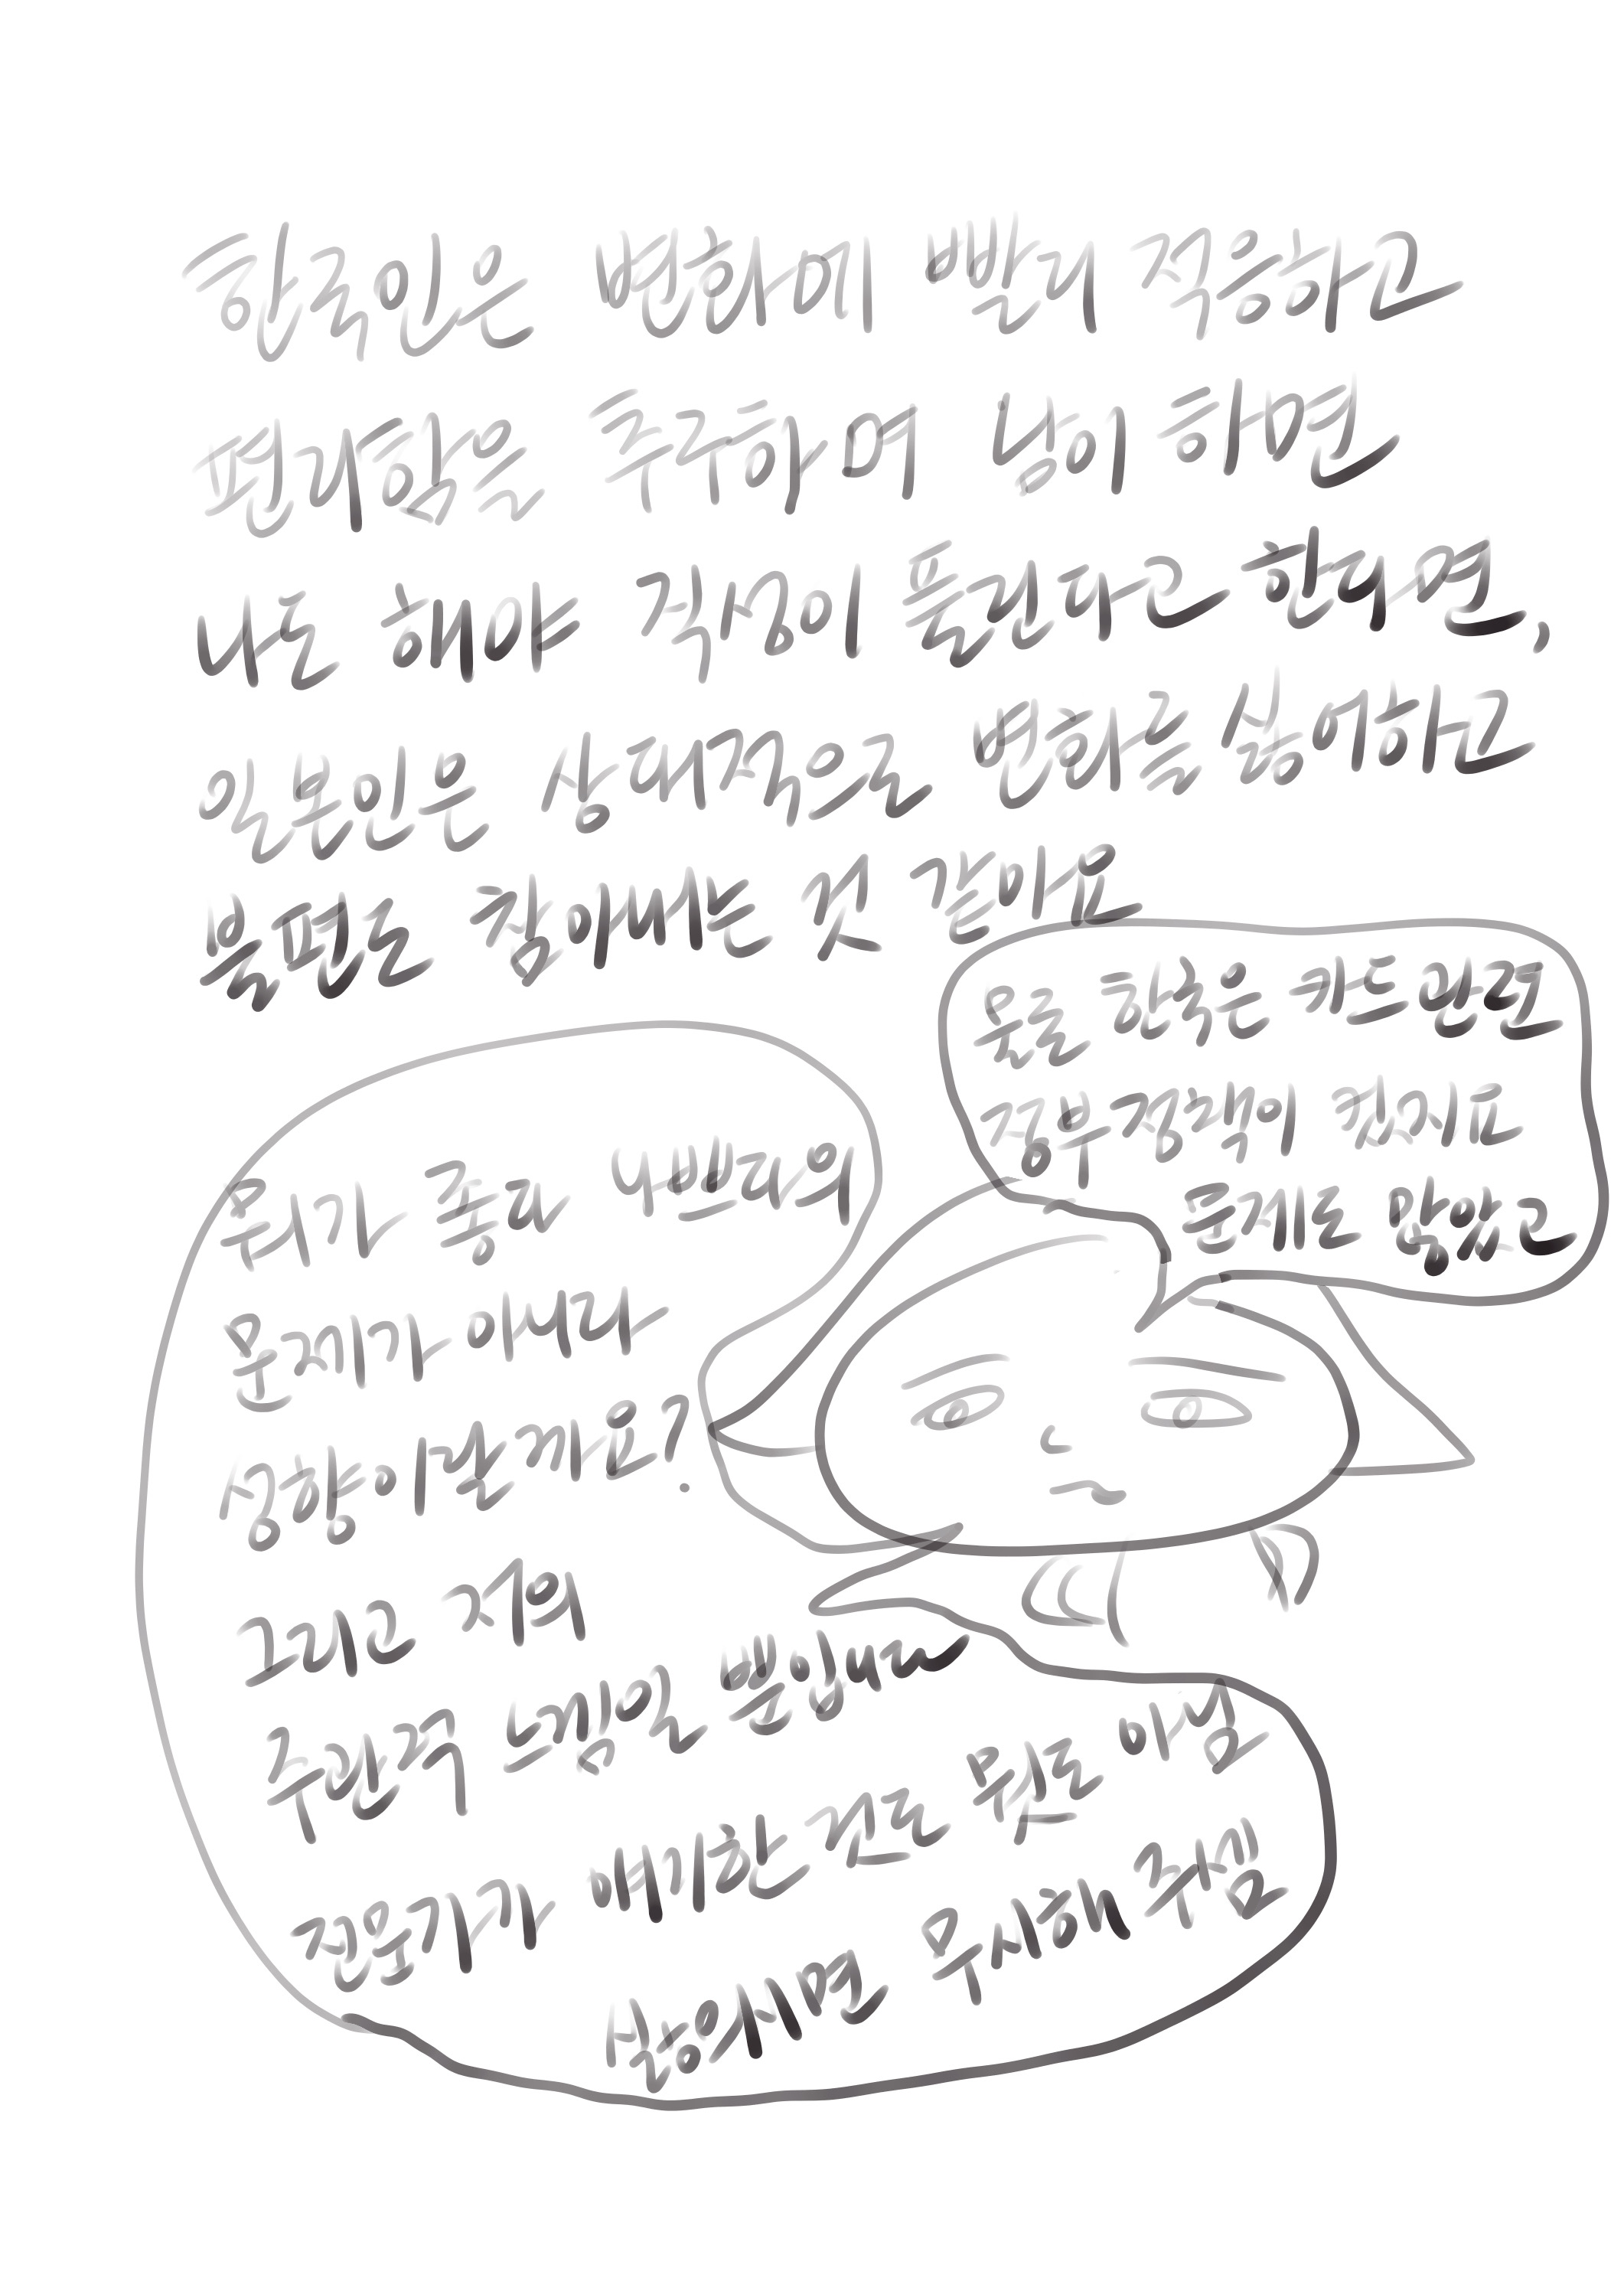 한국인은 변화에 빨리 적응하고
편리함을 추구하며 남이 하면
나도 해야 직성이 풀린다고 한다면,
일본인은 상대적으로 변화를 싫어하고
불편도 참아내는 것 같아요
물론 한국은 카드 관련
정부정책이 컸지요
문제도 많았고
뭐가 좋다 나쁘다의
문제가 아니라
성향이랄까요?
그리고 저의
주관적 느낌일 뿐입니다
전문가가 얘기한 것도 뭣도 아님
싫으시면 무시해 주심